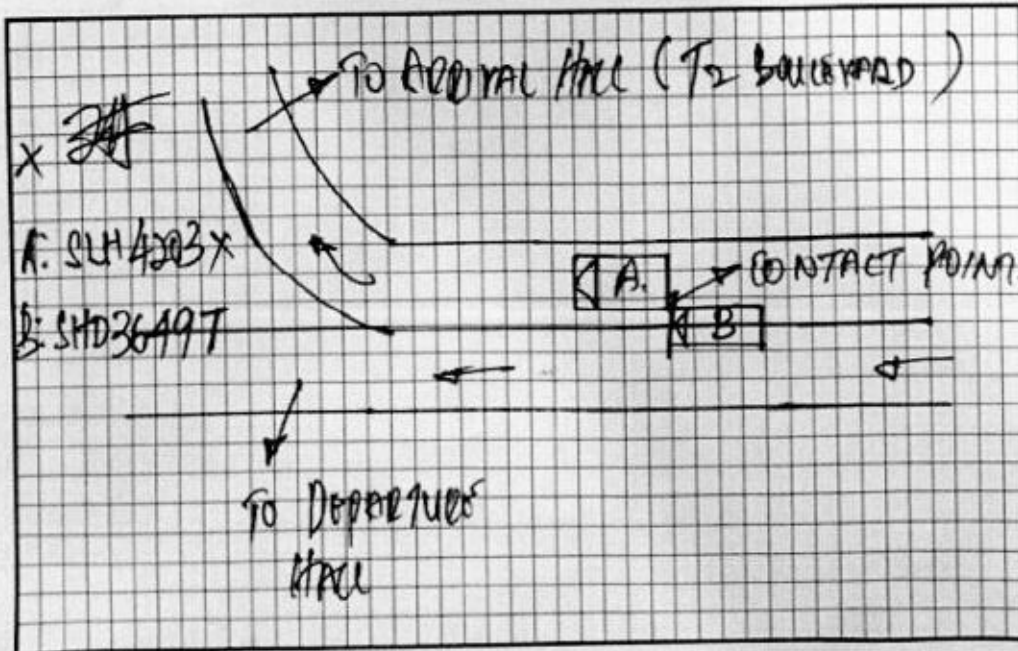 TO ARRIVAL HALL (T2 BOULEVARD)
X
A: SLH4203X
B: SHD3649T
A.
CONTACT POINT
B
TO DEPARTURE
HALL